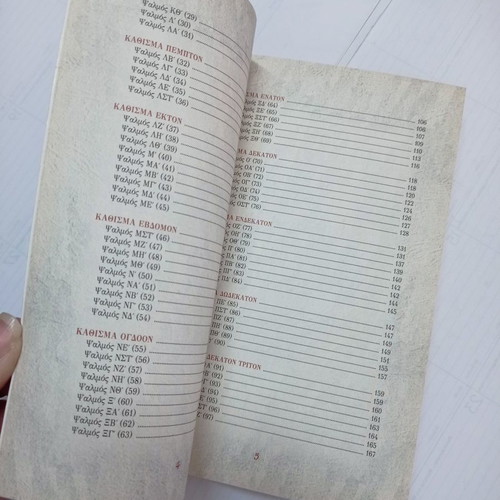 Ψαλμός ΚΘ' (29)
Ψαλμός Λ' (30)
Ψαλμός ΛΑ' (31)
ΚΑΘΙΣΜΑ ΠΕΜΠΤΟΝ
Ψαλμός ΛΒ' (32)
Ψαλμός ΛΓ' (33)
Ψαλμός ΛΔ' (34)
Ψαλμός ΛΕ' (35)
Ψαλμός ΛΣΤ' (36)
ΚΑΘΙΣΜΑ ΕΚΤΟΝ
Ψαλμός ΛΖ' (37)
Ψαλμός ΛΗ' (38)
Ψαλμός ΛΘ' (39)
Ψαλμός Μ' (40)
Ψαλμός ΜΑ' (41)
Ψαλμός ΜΒ' (42)
Ψαλμός ΜΓ' (43)
Ψαλμός ΜΔ' (44)
Ψαλμός ΜΕ' (45)
ΚΑΘΙΣΜΑ ΕΒΔΟΜΟΝ
Ψαλμός ΜΣΤ' (46)
Ψαλμός ΜΖ' (47)
Ψαλμός ΜΗ' (48)
Ψαλμός ΜΘ' (49)
Ψαλμός Ν' (50)
Ψαλμός ΝΑ' (51)
Ψαλμός ΝΒ' (52)
Ψαλμός ΝΓ' (53)
Ψαλμός ΝΔ' (54)
ΚΑΘΙΣΜΑ ΟΓΔΟΟΝ
Ψαλμός ΝΕ' (55)
Ψαλμός ΝΣΤ' (56)
Ψαλμός ΝΖ' (57)
Ψαλμός ΝΗ' (58)
Ψαλμός ΝΘ' (59)
Ψαλμός Ξ' (60)
Ψαλμός ΞΑ' (61)
Ψαλμός ΞΒ' (62)
Ψαλμός ΞΓ' (63)
4
ΣΜΑ ΕΝΑΤΟΝ
ΞΔ' (64) 106
ΞΕ' (65) 106
ΞΣΤ' (66) 107
ΞΖ' (67) 109
ΞΗ' (68) 110
ΞΘ' (69) 113
ΜΑ ΔΕΚΑΤΟΝ 116
Ο' (70) 118
ΟΑ' (71) 118
ΟΒ' (72)
ΟΓ' (73)
ΟΔ' (74) 124
ΟΕ' (75) 126
ΟΣΤ' (76) 127
ΕΝΔΕΚΑΤΟΝ 128
ΟΖ' (77) 131
ΟΗ' (78) 131
ΟΘ' (79) 137
Π' (80)
ΠΑ' (81)
ΠΒ' (82) 142
ΠΓ' (83)
ΠΔ' (84) 144
145
ΔΩΔΕΚΑΤΟΝ 147
ΠΕ' (85) 147
ΣΤ' (86) 149
Ζ' (87)
ΠΗ' (88) 151
(89)
(90)
ΔΕΚΑΤΟΝ ΤΡΙΤΟΝ
(91) 159
(92) 160
(93)
(94) 162
(95)
(96) 165
(97) 167
5